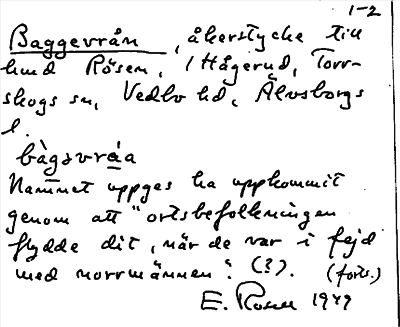 1-2
Baggevrån, åkerstycke till
hmd Rösen, 1 Hågerud, Torr-
skogs sn, Vedbo hd, Älvsborgs
l.
bàgəvrəa
Namnet uppges ha uppkommit
genom att "ortsbefolkningen
flydde dit, när de var i fejd
med norrmännen". (?). (forts.)
E. Rosen 1949